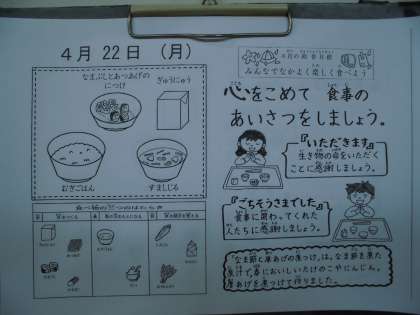 4月 22日 (月)
なまぶしとあつあげの
につけ
ぎゅうにゅう
むぎごはん
すましじる
4月の給食目標
みんなでなかよく楽しく食べよう
心をこめて 食事の
あいさつをしましょう。
『いただきます』
生き物の命をいただく
ことに感謝しましょう。
『ごちそうさまでした』
食事に関わってくれた
人たちに感謝しましょう。
「なま節と厚あげの煮つけ」は、なま節を煮た
煮汁で、春においしいたけのこやにんじん、
厚あげを煮つけて作りました。